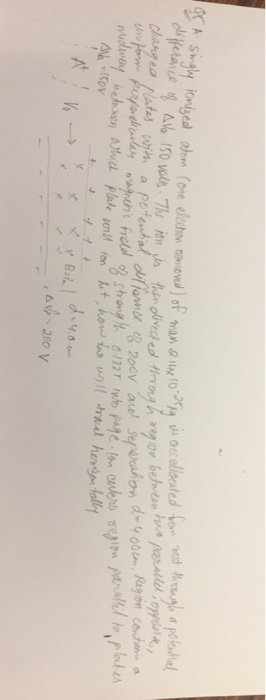 A singly ionized atom (one electron removed) of mass 2.16x10^-25 kg is accelerated from rest through a potential
difference of ΔVa 150 volts. The ion is then directed through region between two parallel, opposite,
charged plates with a potential difference of 200V and seperation d=4.00cm. Region contains a
uniform perpendicular magnetic field of strength 0.122T into page. Ion enters region parallel to plates
midway between Which plate will ion hit, how far will travel horizontally
ΔVa=150V
+ + + + +
A+ V₀ → x x x x Bin d=4.0cm
- - - - - , ΔVp=200 V